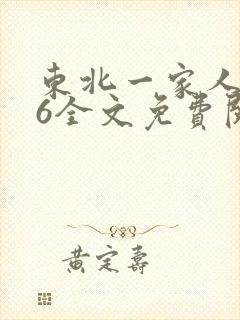 東北一家人
6全文免費閱
黃定壽